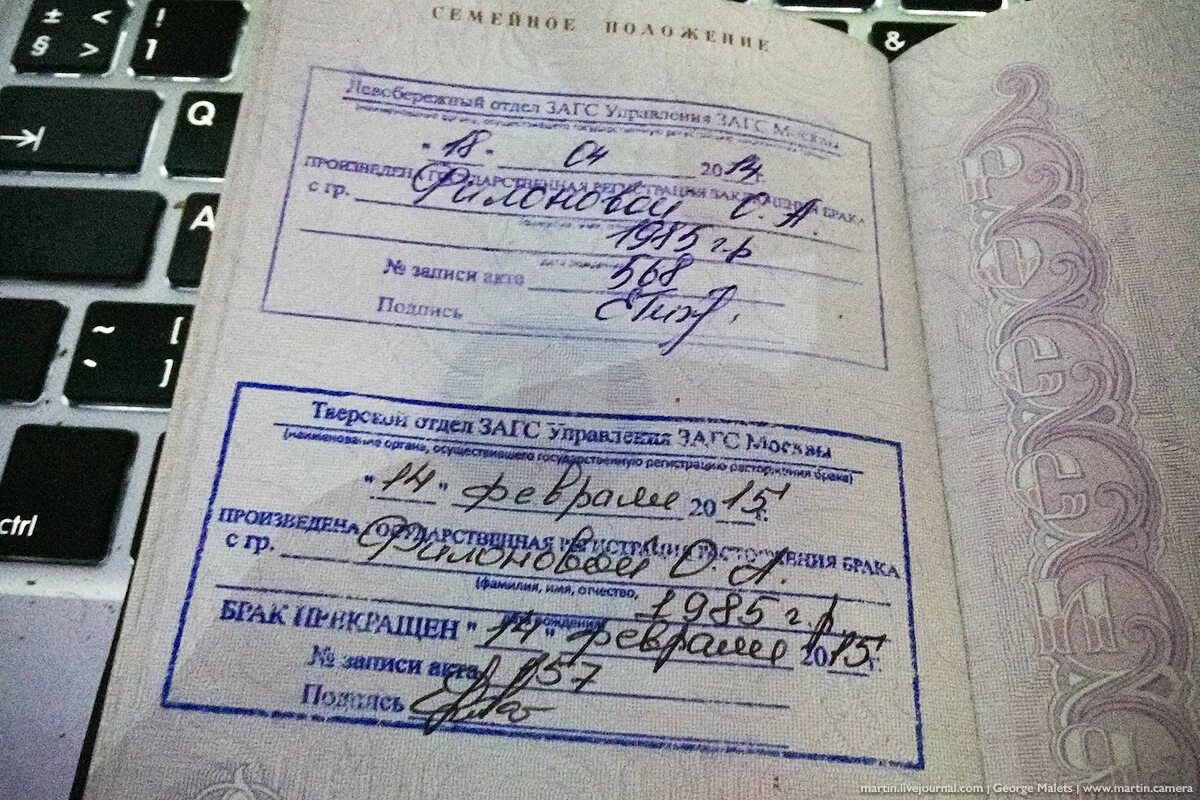 ± <
§ >
!
1
Q
A
~ [
` ]
ctrl
&
СЕМЕЙНОЕ ПОЛОЖЕНИЕ
Левобережный отдел ЗАГС Управления ЗАГС Москвы
"18" 04 2014 г.
ПРОИЗВЕДЕНА ГОСУДАРСТВЕННАЯ РЕГИСТРАЦИЯ ЗАКЛЮЧЕНИЯ БРАКА
с гр. Филоновой О. А.
1985 г.р
№ записи акта 568
Подпись
Тверской отдел ЗАГС Управления ЗАГС Москвы
(наименование органа, осуществившего государственную регистрацию расторжения брака)
"14" февраля 2015 г.
ПРОИЗВЕДЕНА ГОСУДАРСТВЕННАЯ РЕГИСТРАЦИЯ РАСТОРЖЕНИЯ БРАКА
с гр. Филоновой О. А.
(фамилия, имя, отчество,
1985 г.р.
дата рождения)
БРАК ПРЕКРАЩЕН "14" февраля 2015 г.
№ записи акта 157
Подпись
РОССИЯ
martin.livejournal.com | George Malets | www.martin.camera